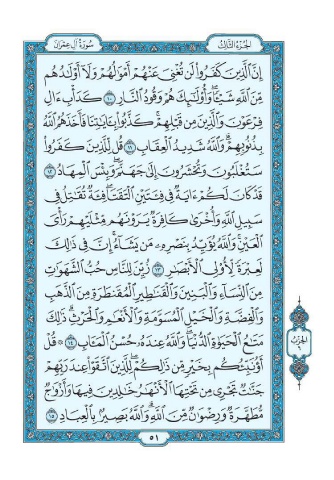 الجزء الثالث سورة آل عمران
إِنَّ ٱلَّذِينَ كَفَرُواْ لَن تُغْنِىَ عَنْهُمْ أَمْوَٰلُهُمْ وَلَآ أَوْلَـٰدُهُم
مِّنَ ٱللَّهِ شَيْـًٔا ۖ وَأُوْلَـٰٓئِكَ هُمْ وَقُودُ ٱلنَّارِ ١٠ كَدَأْبِ ءَالِ
فِرْعَوْنَ وَٱلَّذِينَ مِن قَبْلِهِمْ ۚ كَذَّبُواْ بِـَٔايَـٰتِنَا فَأَخَذَهُمُ ٱللَّهُ
بِذُنُوبِهِمْ ۗ وَٱللَّهُ شَدِيدُ ٱلْعِقَابِ ١١ قُل لِّلَّذِينَ كَفَرُواْ
سَتُغْلَبُونَ وَتُحْشَرُونَ إِلَىٰ جَهَنَّمَ ۚ وَبِئْسَ ٱلْمِهَادُ ١٢
قَدْ كَانَ لَكُمْ ءَايَةٌ فِى فِئَتَيْنِ ٱلْتَقَتَا ۖ فِئَةٌ تُقَـٰتِلُ فِى
سَبِيلِ ٱللَّهِ وَأُخْرَىٰ كَافِرَةٌ يَرَوْنَهُم مِّثْلَيْهِمْ رَأْىَ
ٱلْعَيْنِ ۚ وَٱللَّهُ يُؤَيِّدُ بِنَصْرِهِۦ مَن يَشَآءُ ۗ إِنَّ فِى ذَٰلِكَ
لَعِبْرَةً لِّأُوْلِى ٱلْأَبْصَـٰرِ ١٣ زُيِّنَ لِلنَّاسِ حُبُّ ٱلشَّهَوَٰتِ
مِنَ ٱلنِّسَآءِ وَٱلْبَنِينَ وَٱلْقَنَـٰطِيرِ ٱلْمُقَنطَرَةِ مِنَ ٱلذَّهَبِ
وَٱلْفِضَّةِ وَٱلْخَيْلِ ٱلْمُسَوَّمَةِ وَٱلْأَنْعَـٰمِ وَٱلْحَرْثِ ۗ ذَٰلِكَ
مَتَـٰعُ ٱلْحَيَوٰةِ ٱلدُّنْيَا ۖ وَٱللَّهُ عِندَهُۥ حُسْنُ ٱلْمَـَٔابِ ١٤ ۞ قُلْ
أَؤُنَبِّئُكُم بِخَيْرٍ مِّن ذَٰلِكُمْ ۚ لِلَّذِينَ ٱتَّقَوْاْ عِندَ رَبِّهِمْ
جَنَّـٰتٌ تَجْرِى مِن تَحْتِهَا ٱلْأَنْهَـٰرُ خَـٰلِدِينَ فِيهَا وَأَزْوَٰجٌ
مُّطَهَّرَةٌ وَرِضْوَٰنٌ مِّنَ ٱللَّهِ ۗ وَٱللَّهُ بَصِيرٌۢ بِٱلْعِبَادِ ١٥
الحزب
٦
٥١